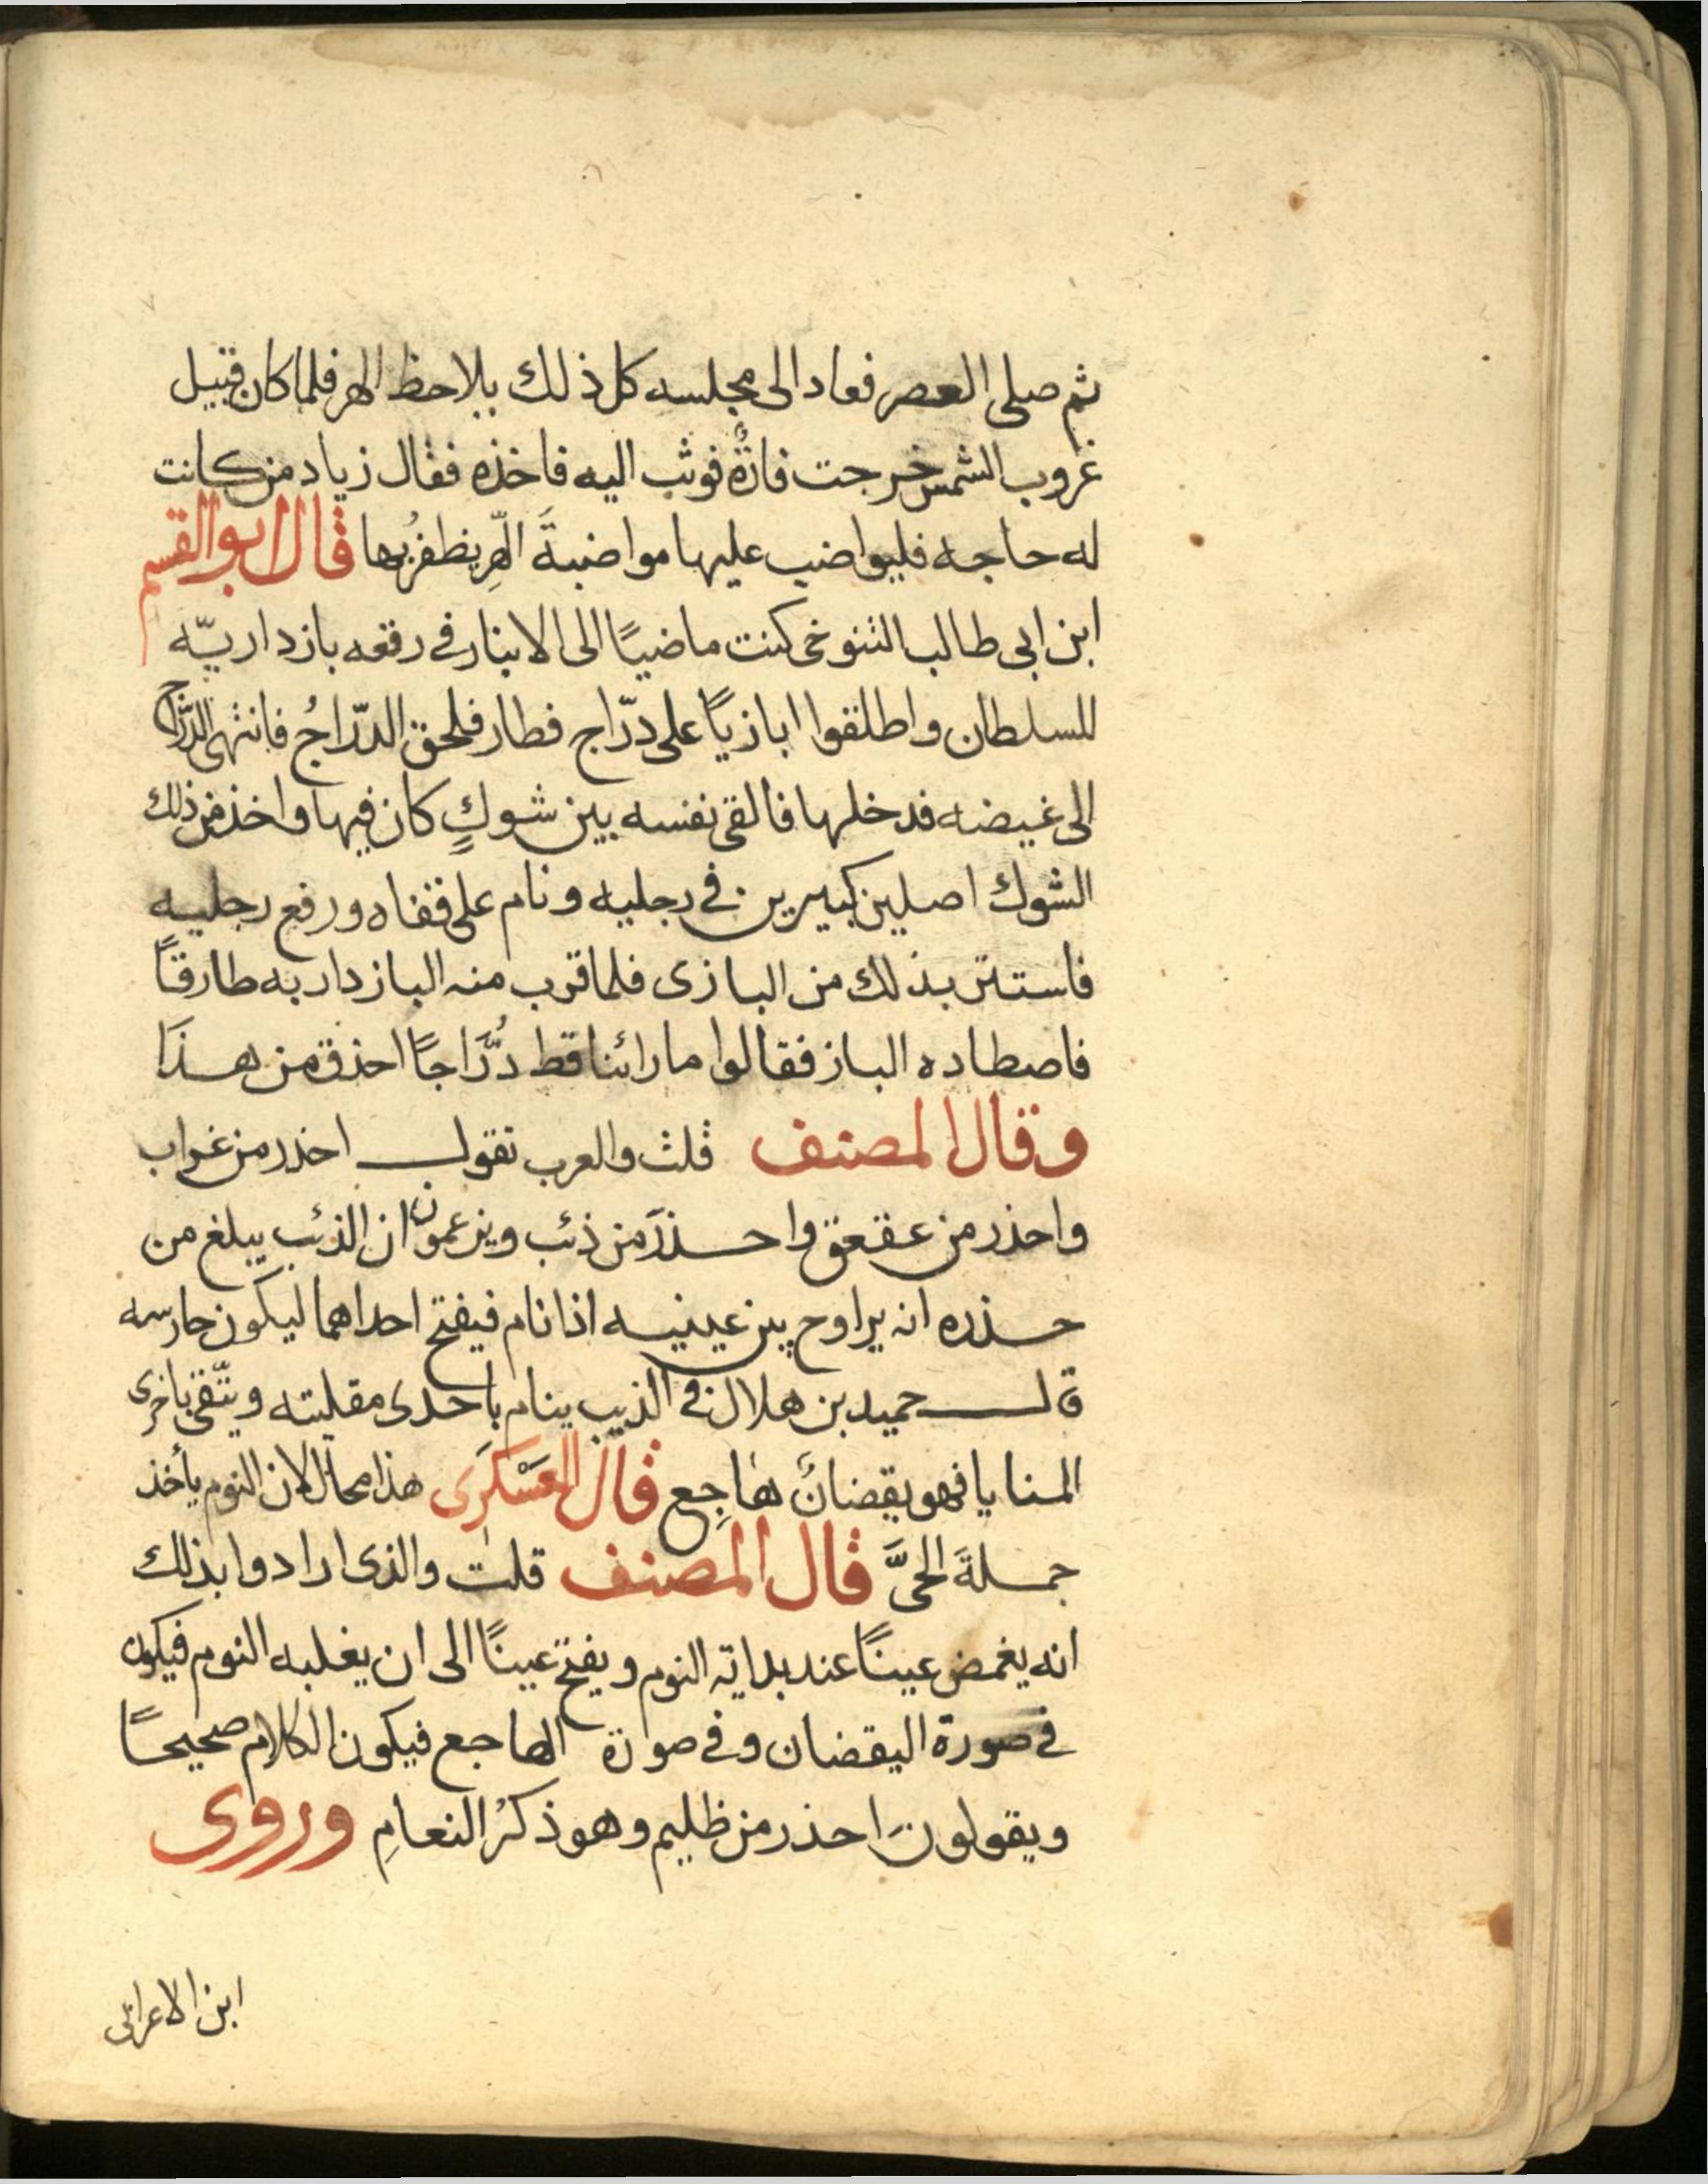 ثم صلى العصر فعاد الى مجلسه كل ذلك يلاحظ الهر فلما كان قبيل
غروب الشمس خرجت فارةٌ فوثب اليه فاخذه فقال زياد من كانت
له حاجه فليواضب عليها مواضبةَ الهِّر يظفرُ بها قال ابو القسم
ابن ابى طالب التنوخى كنت ماضيًا الى الانبار فى رفقه بازداريّه
للسلطان واطلقوا ابازيًا على درّاج فطار فلحق الدرّاجُ فانتهى الدُّرّاج
الى غيضه فدخلها فالقى نفسه بين شوكٍ كان فيها واخذ من ذلك
الشوك اصلين كبيرين فى رجليه ونام على قفاه ورفع رجليه
فاستتر بذلك من البازى فلما قرب منه البازدار به طارقًا
فاصطاده الباز فقالوا ما رائنا قط دُرَّاجًا احذق من هذَا
وقال المصنف قلت والعرب تقول احذر من غراب
واحذر من عقعق واحذرَ من ذئب ويزعمون ان الذئب يبلغ من
حذره انه يراوح بين عينيه اذا نام فيفتح احداهما ليكون حارسه
قال حميد بن هلال فى الذيب ينام باحدى مقلتيه ويتّقى باخرى
المنايا فهو يقضانَ هاجِع قال العَسْكَرِى هذا محال لان النوم يأخذ
جملةَ الحىَّ قال المصنف قلت والذى ارادوا بذلك
انه يغمض عينًا عند بداية النوم ويفتح عينًا الى ان يغلبه النوم فيكون
فى صورة اليقضان وفى صورة الهاجع فيكون الكلام صحيحًا
ويقولونَ احذر من ظليم وهو ذكرُ النعامِ وروى
ابن الاعرابى